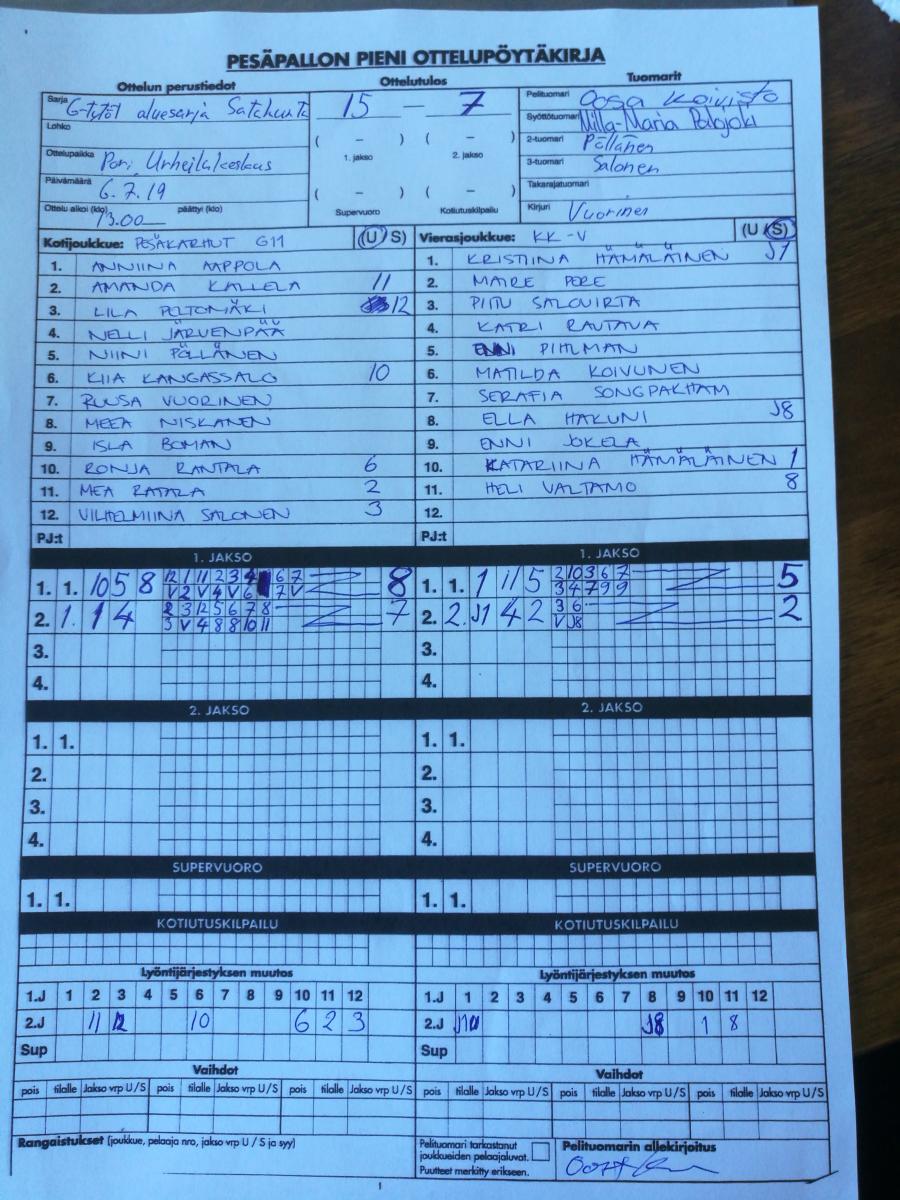 PESÄPALLON PIENI OTTELUPÖYTÄKIRJA
Ottelun perustiedot
Sarja G-tytöt aluesarja Satakunta
Lohko
Ottelupaikka Pori, Urheilukeskus
Päivämäärä 6.7.19
Ottelu alkoi (klo) 13.00 päättyi (klo)
Ottelutulos
15 – 7
( – ) ( – )
1. jakso 2. jakso
( – ) ( – )
Supervuoro Kotiutuskilpailu
Tuomarit
Pelituomari Oosa Koivisto
Syöttötuomari Milla-Maria Palojoki
2-tuomari Pöllänen
3-tuomari Salonen
Takarajatuomari
Kirjuri Vuorinen
Kotijoukkue: PESÄKARHUT G11 (U S)
1. ANNIINA AAPPOLA
2. AMANDA KALLELA 11
3. LILA PELTOMÄKI 12
4. NELLI JÄRVENPÄÄ
5. NIINI PÖLLÄNEN
6. KIIA KANGASSALO 10
7. RUUSA VUORINEN
8. MEEA NISKANEN
9. ISLA BOMAN
10. RONJA RANTALA 6
11. MEA RATALA 2
12. VILHELMIINA SALONEN 3
PJ:t
Vierasjoukkue: KK-V (U S)
1. KRISTIINA HÄMÄLÄINEN J1
2. MAIRE PERE
3. PITU SALOVIRTA
4. KATRI RAUTAVA
5. ENNI PIHLMAN
6. MATILDA KOIVUNEN
7. SERAFIA SONGPAKHAM
8. ELLA HAKUNI J8
9. ENNI JOKELA
10. KATARIINA HÄMÄLÄINEN 1
11. HELI VALTAMO 8
12.
PJ:t
1. JAKSO
1. 1. 10 5 8 12 1 11 2 3 4 6 7 8
V 2 V 4 V 6 7 V
2. 1. 1 4 2 3 12 5 6 7 8 7
3 V 4 8 8 10 11
3.
4.
1. JAKSO
1. 1. 1 11 5 2 10 3 6 7 5
3 4 7 9 9
2. 2. J1 4 2 3 6 2
V J8
3.
4.
2. JAKSO
1. 1.
2.
3.
4.
2. JAKSO
1. 1.
2.
3.
4.
SUPERVUORO
1. 1.
SUPERVUORO
1. 1.
KOTIUTUSKILPAILU
KOTIUTUSKILPAILU
Lyöntijärjestyksen muutos
1.J 1 2 3 4 5 6 7 8 9 10 11 12
2.J 11 12 10 6 2 3
Sup
Lyöntijärjestyksen muutos
1.J 1 2 3 4 5 6 7 8 9 10 11 12
2.J J8 1 8
Sup
Vaihdot
pois tilalle Jakso vrp U / S pois tilalle Jakso vrp U / S pois tilalle Jakso vrp U / S
Vaihdot
pois tilalle Jakso vrp U / S pois tilalle Jakso vrp U / S pois tilalle Jakso vrp U / S
Rangaistukset (joukkue, pelaaja nro, jakso vrp U / S ja syy)
Pelituomari tarkastanut
joukkueiden pelaajaluvat.
Puutteet merkitty erikseen.
Pelituomarin allekirjoitus
1